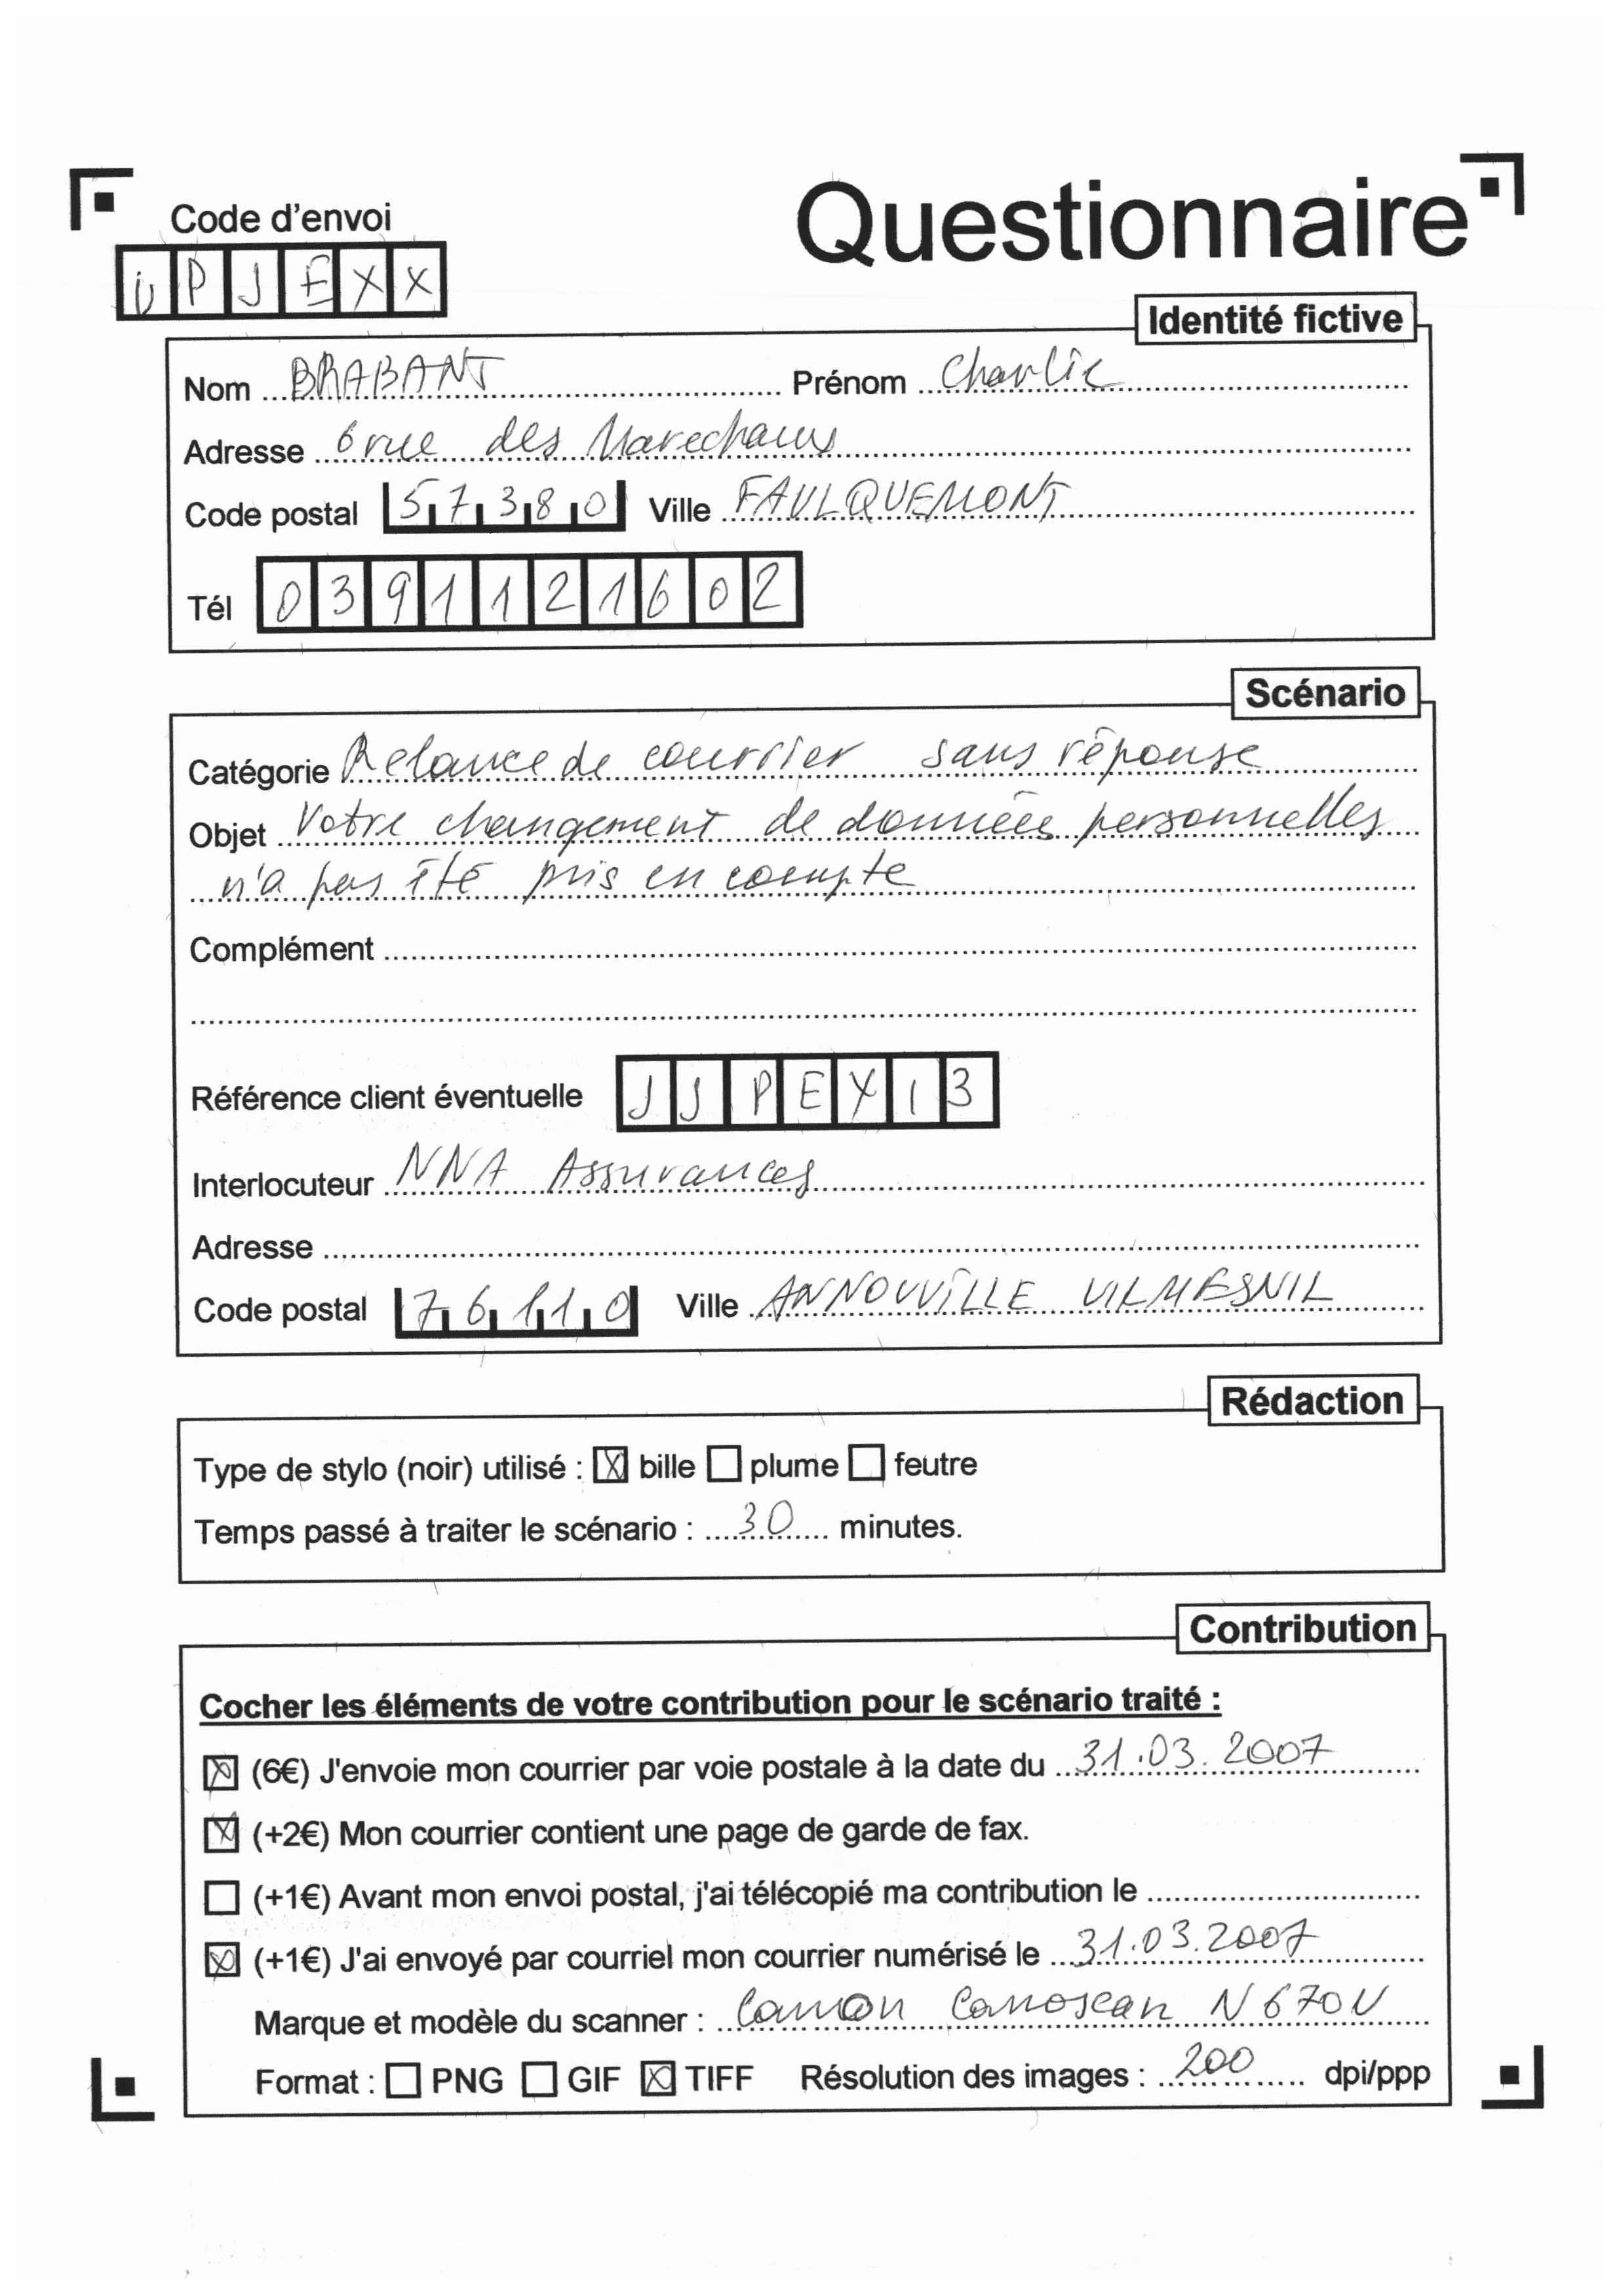 Code d'envoi
Questionnaire
U P J E X X
Identité fictive
Nom BRABANT Prénom Charlie
Adresse 6 rue des Marechaux
Code postal 57380 Ville FAULQUEMONT
Tél 0391121602
Scénario
Catégorie Relance de courrier sans réponse
Objet Votre changement de données personnelles
n'a pas été pris en compte
Complément
Référence client éventuelle J J P E X 1 3
Interlocuteur NNA Assurances
Adresse
Code postal 76110 Ville ANNOUVILLE VILMESNIL
Rédaction
Type de stylo (noir) utilisé : ☒ bille ☐ plume ☐ feutre
Temps passé à traiter le scénario : 30 minutes.
Contribution
Cocher les éléments de votre contribution pour le scénario traité :
☒ (6€) J'envoie mon courrier par voie postale à la date du 31.03.2007
☒ (+2€) Mon courrier contient une page de garde de fax.
☐ (+1€) Avant mon envoi postal, j'ai télécopié ma contribution le
☒ (+1€) J'ai envoyé par courriel mon courrier numérisé le 31.03.2007
Marque et modèle du scanner : Canon Canoscan N670U
Format : ☐ PNG ☐ GIF ☒ TIFF Résolution des images : 200 dpi/ppp